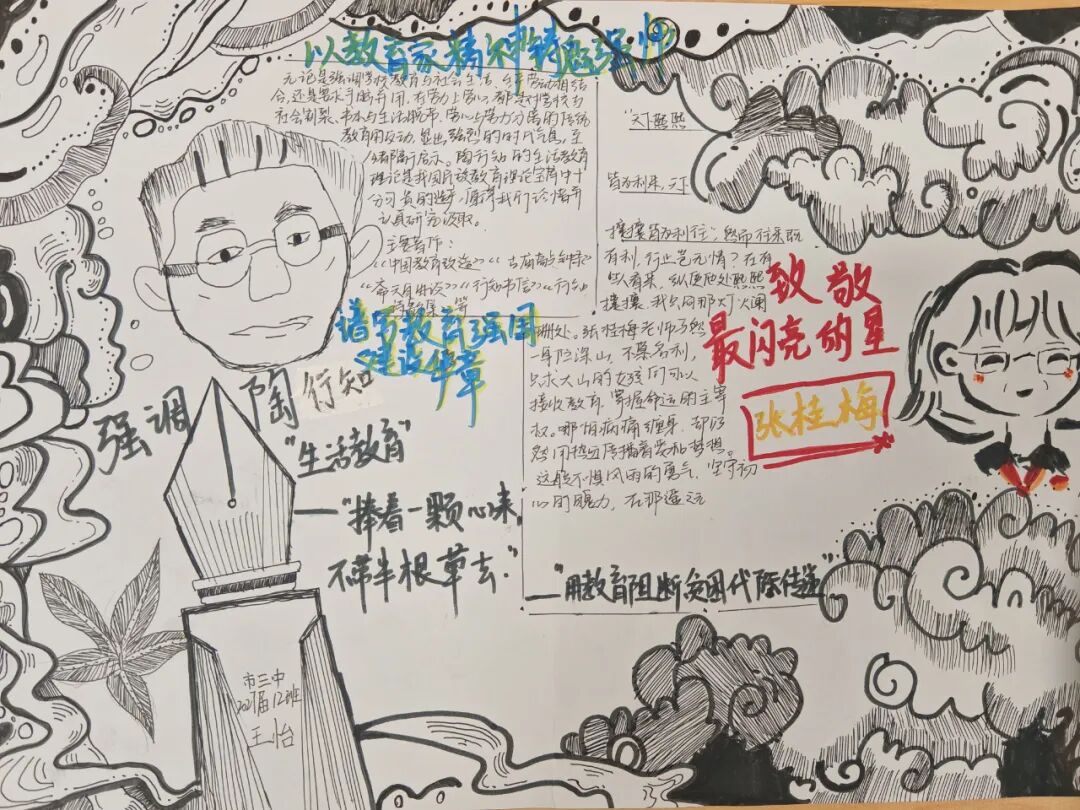 以教育家精神铸魂强师
无论是强调学校教育与社会生活、生产劳动相结
合,还是要求手脑并用,在劳力上劳心,都是对学校与
社会割裂、书本与生活脱节、劳心与劳力分离的传统
教育的反动,显出强烈的时代气息,至
今有所启示。陶行知的生活教育
理论是我国民族教育理论宝库中十
分可贵的遗产,值得我们珍惜并
认真研究汲取。
主要著作:
《中国教育改造》《古庙敲钟录》
《斋夫自由谈》《行知书信》《行知
诗歌集》等
谱写教育强国
建设华章
强调
陶行知
"生活教育"
—"捧着一颗心来,
不带半根草去。"
市三中
2027届12班
王怡
"天下熙熙
皆为利来,天下
攘攘皆为利往"。然而往来既
有利,行止岂无情?在有
些人看来,纵使他处熙熙
攘攘,我只向那灯火阑
珊处。张桂梅老师乃然
一身隐深山,不慕名利,
只求大山的女孩们可以
接收教育,掌握命运的主宰
权。哪怕病痛缠身,却仍
然用热血传播着爱和梦想。
这般不惧风雨的勇气,坚守初
心的魄力,在那遥远
致敬
最闪亮的星
张桂梅
—"用教育阻断贫困代际传递"